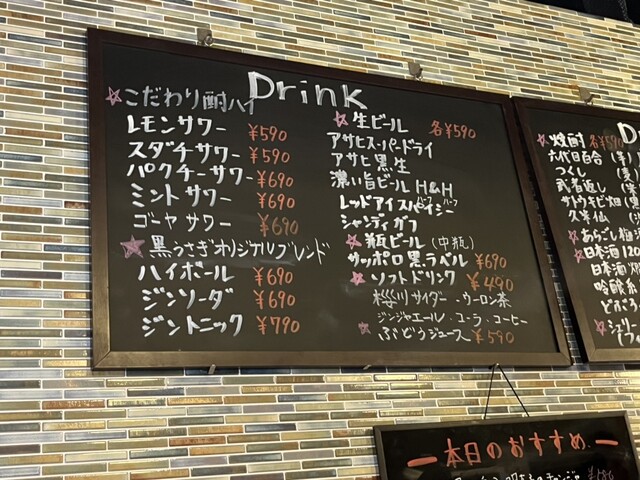 Drink
☆こだわり酎ハイ
レモンサワー ¥590
スダチサワー ¥590
パクチーサワー ¥690
ミントサワー ¥690
ゴーヤサワー ¥690
★黒うさぎオリジナルブレンド
ハイボール ¥690
ジンソーダ ¥690
ジントニック ¥790
☆生ビール 各¥590
アサヒスーパードライ
アサヒ黒生
濃い旨ビール H&H
レッドアイスパイシー
シャンディガフ
☆瓶ビール (中瓶)
サッポロ黒ラベル ¥690
☆ソフトドリンク ¥490
桜川サイダー・ウーロン茶
ジンジャエール・コーラ・コーヒー
☆ぶどうジュース ¥590
D
☆焼酎 各¥590
六代目百合
つくし
武者返し
サトウキビ畑
久米仙
☆あらごし梅酒
☆日本酒120
日本酒
吟醸系
どぶろ
☆シェリー
本日のおすすめ